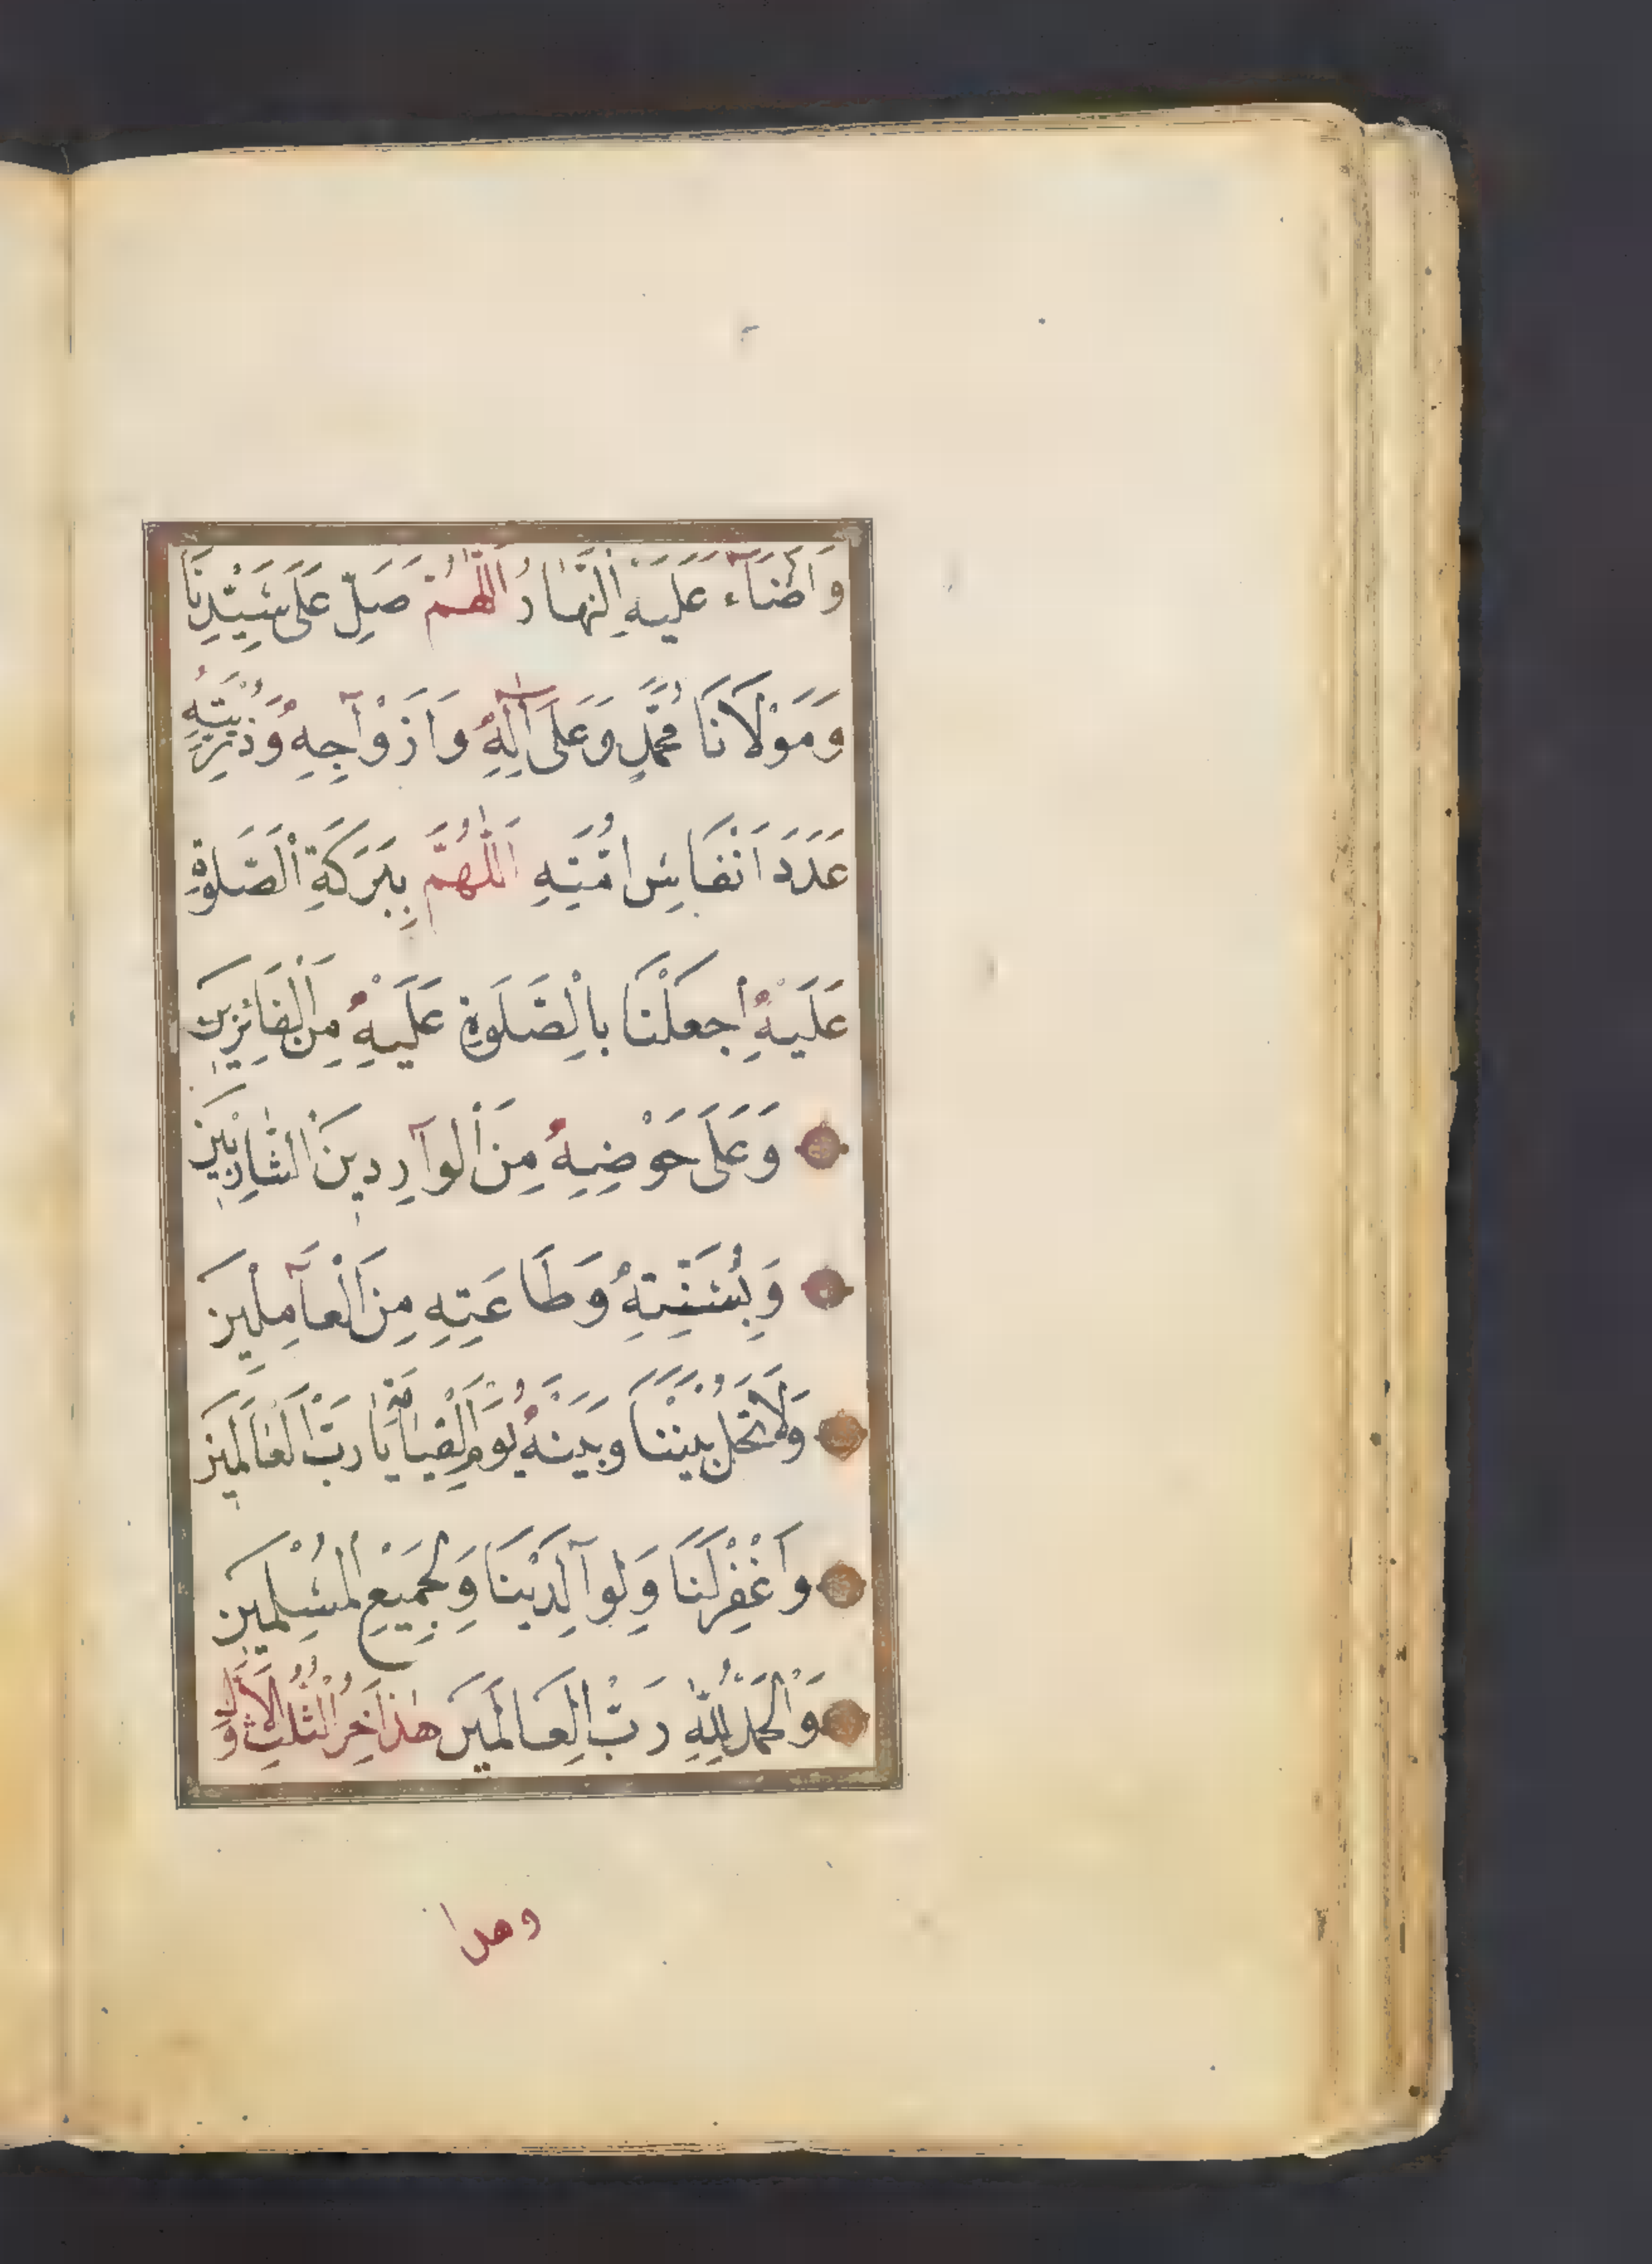 وَاَضَآءَ عَلَيْهِ النَّهَارُ اَللّٰهُمَّ صَلِّ عَلَى سَيِّدِنَا
وَمَوْلَانَا مُحَمَّدٍ وَعَلَى آلِهِ وَاَزْوَآجِهِ وَذُرِّيَّتِهِ
عَدَدَ اَنْفَاسِ اُمَّتِهِ اَللّٰهُمَّ بِبَرَكَةِ الصَّلٰوةِ
عَلَيْهِ اجعَلْنَا بِالصَّلَوةِ عَلَيْهِ مِنَ الْفَائِزِينَ
وَعَلَى حَوْضِهِ مِنَ الْوآرِدِينَ الشَّارِبِينَ
وَبِسُنَّتِهِ وَطَاعَتِهِ مِنَ الْعآمِلِينَ
وَلَا تَحُلْ بَيْنَنَا وَبَيْنَهُ يَوْمَ الْقِيَامَةِ يَا رَبَّ الْعَالَمِينَ
وَاغْفِرْ لَنَا وَلِوآلِدَيْنَا وَلِجَمِيْعِ الْمُسْلِمِينَ
وَالْحَمْدُ لِلّٰهِ رَبِّ الْعَالَمِينَ هٰذَا آخِرُ الثُّلُثِ الْاَوَّلِ
وهدا